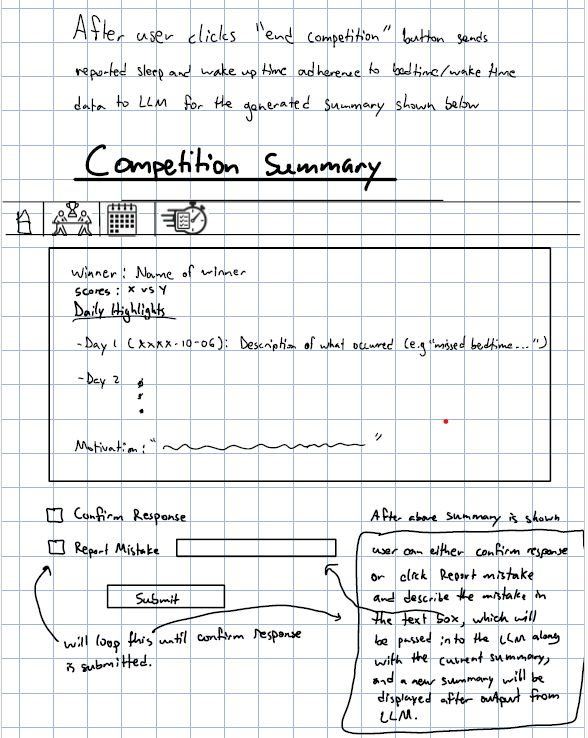 After user clicks "end competition" button sends
reported sleep and wake up time adherence to bedtime/wake time
data to LLM for the generated summary shown below
Competition Summary
Winner: Name of winner
scores: X vs Y
Daily Highlights
- Day 1 (XXXX-10-06): Description of what occurred (e.g "missed bedtime...")
- Day 2
Motivation: " "
Confirm Response
Report Mistake
Submit
will loop this until confirm response
is submitted.
After above summary is shown
user can either confirm response
or click Report mistake
and describe the mistake in
the text box, which will
be passed into the LLM along
with the current summary,
and a new summary will be
displayed after output from
LLM.